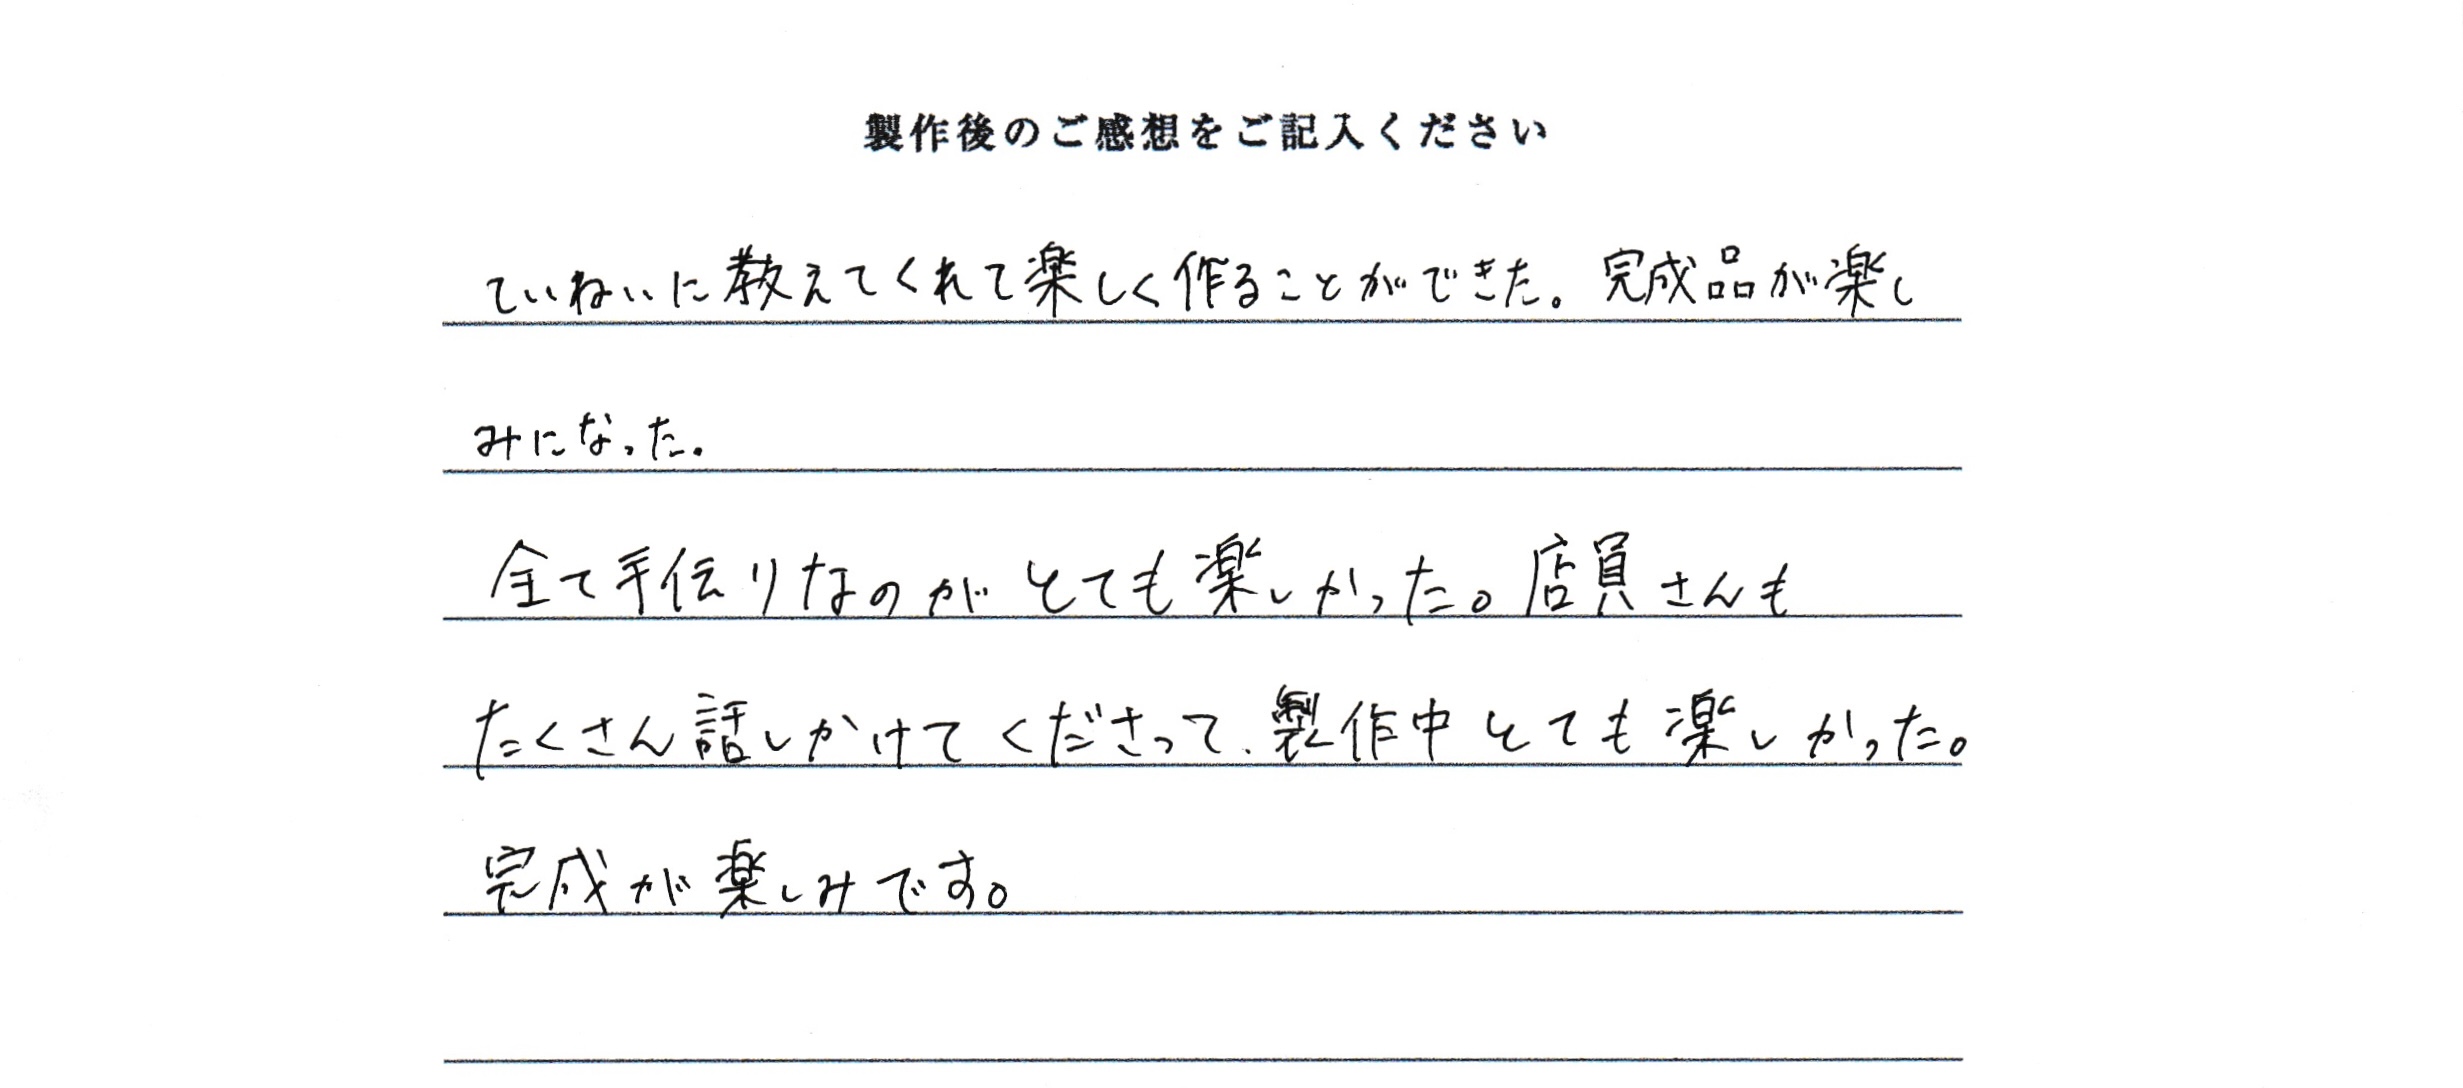 製作後のご感想をご記入ください
ていねいに教えてくれて楽しく作ることができた。完成品が楽し
みになった。
全て手伝りなのがとても楽しかった。店員さんも
たくさん話しかけてくださって、製作中とても楽しかった。
完成が楽しみです。